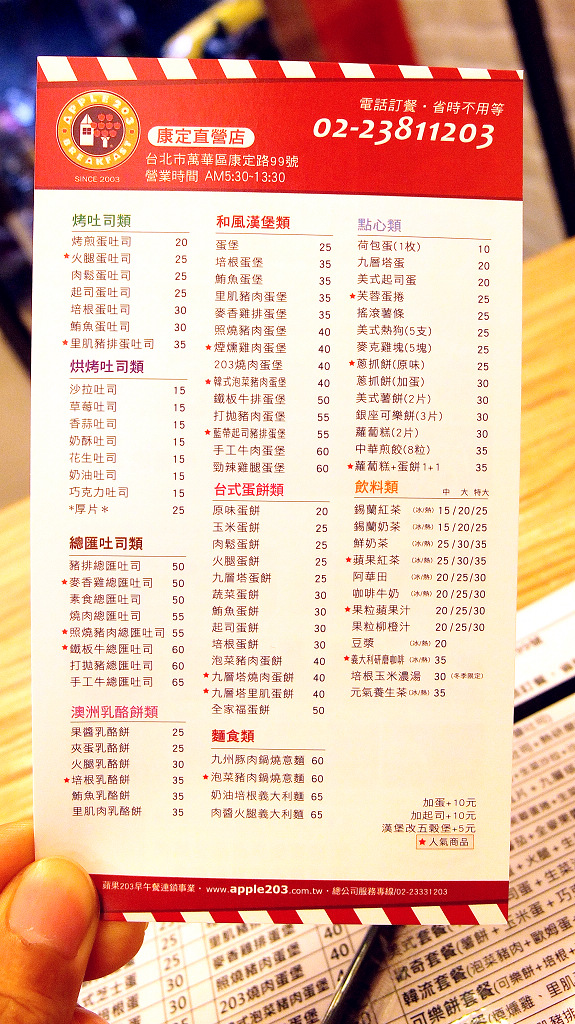 APPLE 203
BREAKFAST
SINCE 2003
康定直營店
台北市萬華區康定路99號
營業時間 AM5:30~13:30
電話訂餐・省時不用等
02-23811203
烤吐司類
烤煎蛋吐司 20
★火腿蛋吐司 25
肉鬆蛋吐司 25
起司蛋吐司 25
培根蛋吐司 30
鮪魚蛋吐司 30
★里肌豬排蛋吐司 35
烘烤吐司類
沙拉吐司 15
草莓吐司 15
香蒜吐司 15
奶酥吐司 15
花生吐司 15
奶油吐司 15
巧克力吐司 15
*厚片* 25
總匯吐司類
豬排總匯吐司 50
★麥香雞總匯吐司 50
素食總匯吐司 50
燒肉總匯吐司 55
★照燒豬肉總匯吐司 55
★鐵板牛總匯吐司 60
打拋豬總匯吐司 60
手工牛總匯吐司 65
澳洲乳酪餅類
果醬乳酪餅 25
夾蛋乳酪餅 25
火腿乳酪餅 30
★培根乳酪餅 35
鮪魚乳酪餅 35
里肌肉乳酪餅 35
和風漢堡類
蛋堡 25
培根蛋堡 35
鮪魚蛋堡 35
里肌豬肉蛋堡 35
麥香雞排蛋堡 35
照燒豬肉蛋堡 40
★煙燻雞肉蛋堡 40
203燒肉蛋堡 40
★韓式泡菜豬肉蛋堡 40
鐵板牛排蛋堡 50
打拋豬肉蛋堡 55
★藍帶起司豬排蛋堡 55
手工牛肉蛋堡 60
勁辣雞腿蛋堡 60
台式蛋餅類
原味蛋餅 20
玉米蛋餅 25
肉鬆蛋餅 25
火腿蛋餅 25
九層塔蛋餅 25
蔬菜蛋餅 30
鮪魚蛋餅 30
起司蛋餅 30
培根蛋餅 30
泡菜豬肉蛋餅 40
★九層塔燒肉蛋餅 40
★九層塔里肌蛋餅 40
全家福蛋餅 50
麵食類
九州豚肉鍋燒意麵 60
★泡菜豬肉鍋燒意麵 60
奶油培根義大利麵 65
肉醬火腿義大利麵 65
點心類
荷包蛋(1枚) 10
九層塔蛋 20
美式起司蛋 20
★芙蓉蛋捲 25
搖滾薯條 25
美式熱狗(5支) 25
麥克雞塊(5塊) 25
★蔥抓餅(原味) 25
蔥抓餅(加蛋) 30
美式薯餅(2片) 30
銀座可樂餅(3片) 30
蘿蔔糕(2片) 30
中華煎餃(8粒) 35
★蘿蔔糕+蛋餅1+1 35
飲料類 中 大 特大
錫蘭紅茶 (冰/熱) 15/20/25
錫蘭奶茶 (冰/熱) 15/20/25
鮮奶茶 (冰/熱) 25/30/35
★蘋果紅茶 (冰/熱) 25/30/35
阿華田 (冰/熱) 20/25/30
咖啡牛奶 (冰/熱) 20/25/30
★果粒蘋果汁 20/25/30
果粒柳橙汁 20/25/30
豆漿 (冰/熱) 20
★義大利研磨咖啡 (冰/熱) 35
培根玉米濃湯 30 (冬季限定)
元氣養生茶 (冰/熱) 35
加蛋+10元
加起司+10元
漢堡改五穀堡+5元
★人氣商品
蘋果203早午餐連鎖事業・www.apple203.com.tw・總公司服務專線/02-23331203
里肌豬肉蛋堡
麥香雞排蛋堡 40
照燒豬肉蛋堡 40
203燒肉蛋堡
25
30